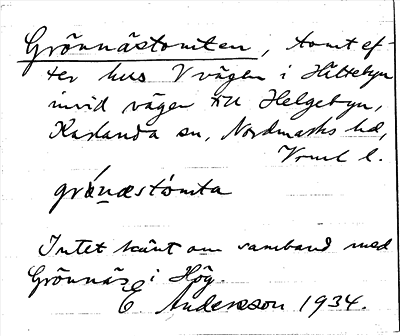 Grönnästomten, tomt ef-
ter hus V vägen i Hiltebyn
invid vägen till Helgebyn,
Karlanda sn, Nordmarks hd,
Vrml l.
grǿnæstómta
Intet känt om samband med
Grönnäs i Hög.
E Andersson 1934.